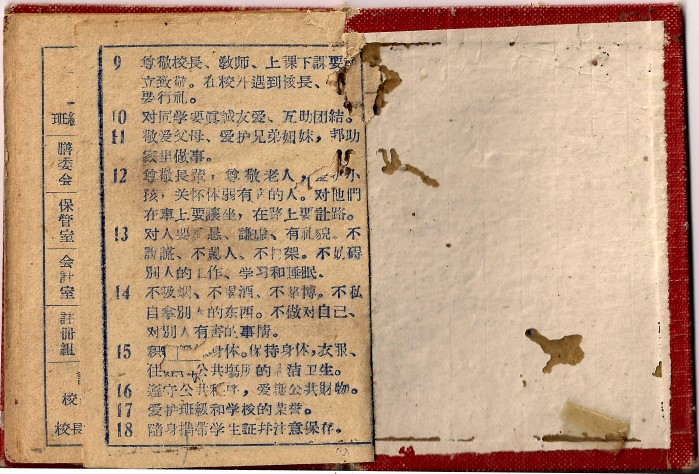 班級
膳委会
保管室
会計室
註冊組
校
校長
9 尊敬校長、敎师、上課下課要
立致敬。在校外遇到校長、
要行礼。
10 对同学要眞誠友爱、互助团結。
11 敬爱父母、爱护兄弟姐妹，帮助
家里做事。
12 尊敬長輩，尊敬老人，爱护小
孩，关怀体弱有病的人。对他們
在車上要讓坐，在路上要讓路。
13 对人要誠恳、謙虛、有礼貌。不
說謊、不駡人、不打架。不妨碍
別人的工作、学习和睡眠。
14 不吸烟、不喝酒、不賭博。不私
自拿別人的东西。不做对自己、
对別人有害的事情。
15 身体。保持身体，衣服、
住 公共場所的清洁卫生。
16 遵守公共秩序，爱護公共財物。
17 爱护班級和学校的荣誉。
18 隨身携带学生証幷注意保存。